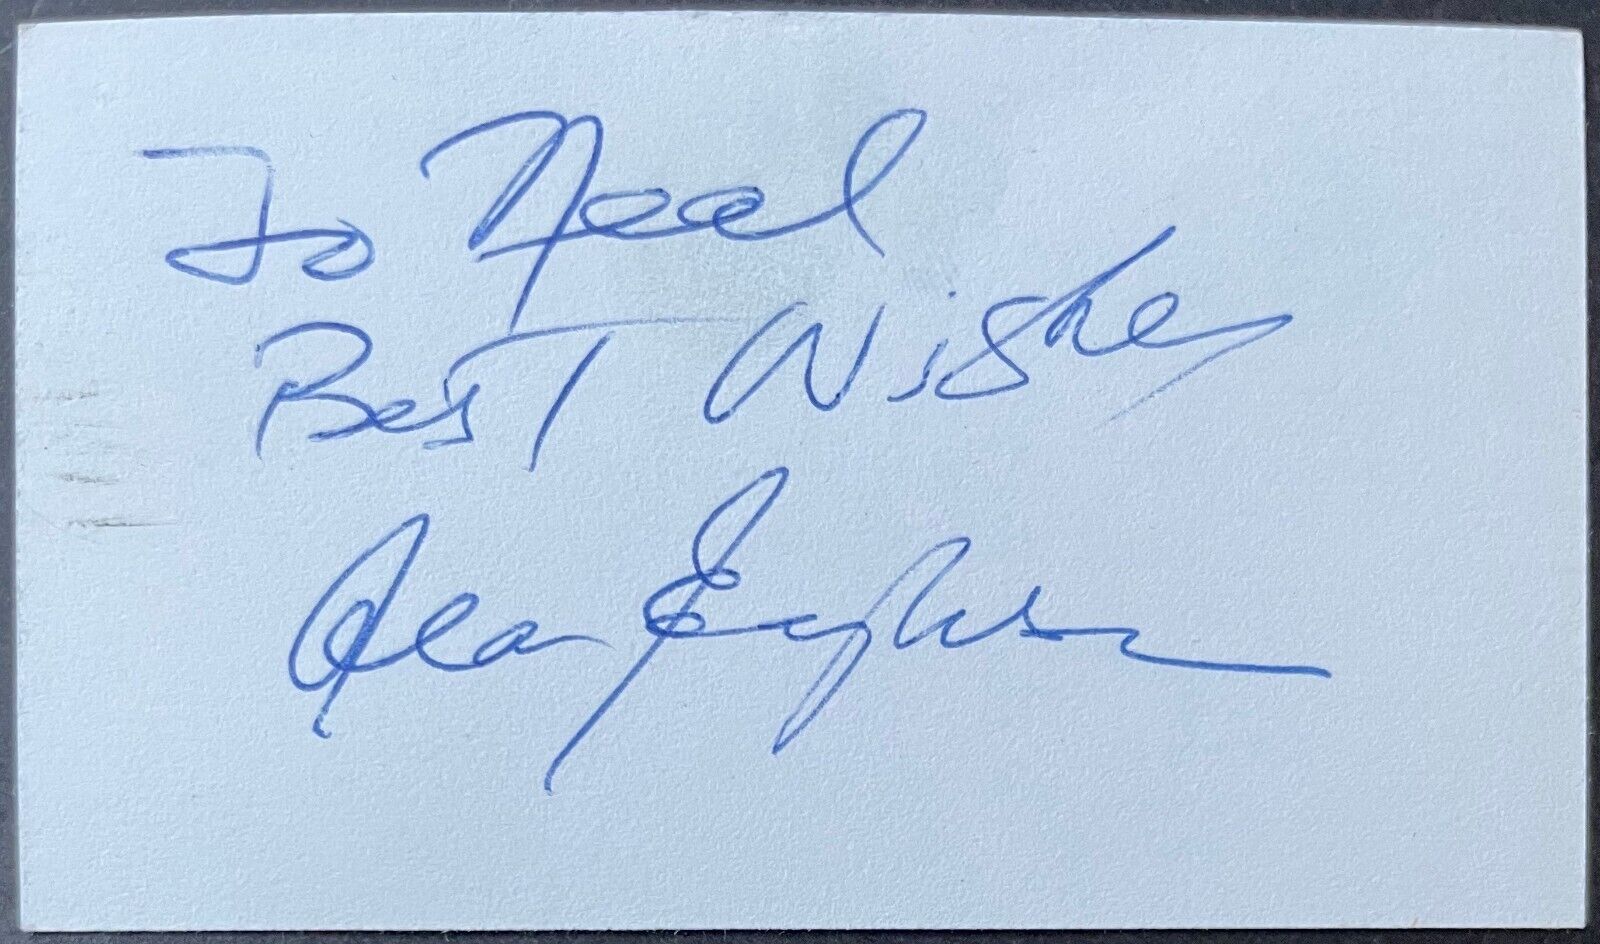 To Neal
Best Wishes
Alan